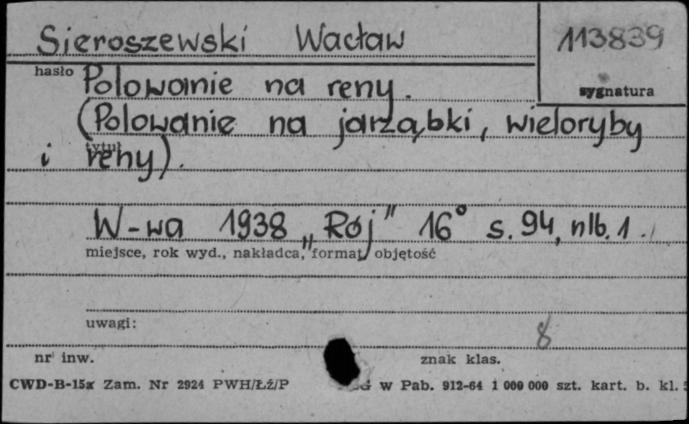 Sieroszewski Wacław
113839
hasło
Polowanie na reny.
sygnatura
(Polowanie na jarząbki, wieloryby
tytuł
i reny).
W-wa 1938 „Rój" 16° s. 94, nlb. 1.
miejsce, rok wyd., nakładca, format, objętość
uwagi:
8
nr inw.
znak klas.
CWD-B-15x Zam. Nr 2924 PWH/ŁŻ/P
w Pab. 912-64 1 000 000 szt. kart. b. kl.